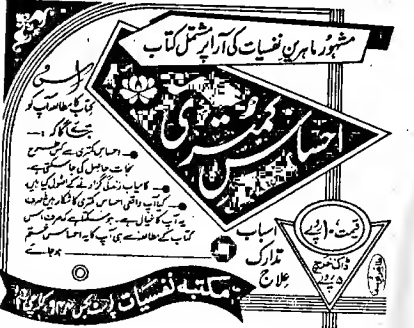 مشہور ماہرین نفسیات کی آرا پر مشتمل کتاب
احساس کمتری
اس
کتاب کا مطالعہ آپ کو
بتائے گا کہ :-
احساس کمتری سے کس طرح
نجات حاصل کی جا سکتی ہے۔
کامیاب زندگی گزارنے کے اصول کیا ہیں
کیا آپ واقعی احساس کمتری کا شکار ہیں یا صرف
یہ آپ کا خیال ہے۔ ہو سکتا ہے کہ صرف اس
کتاب کے مطالعہ سے ہی آپ کا یہ احساس ختم
ہو جائے
اسباب
تدارک
علاج
قیمت ۱۰ روپے
ڈاک خرچ
۵ روپے
مکتبہ نفسیات پوسٹ بکس کراچی